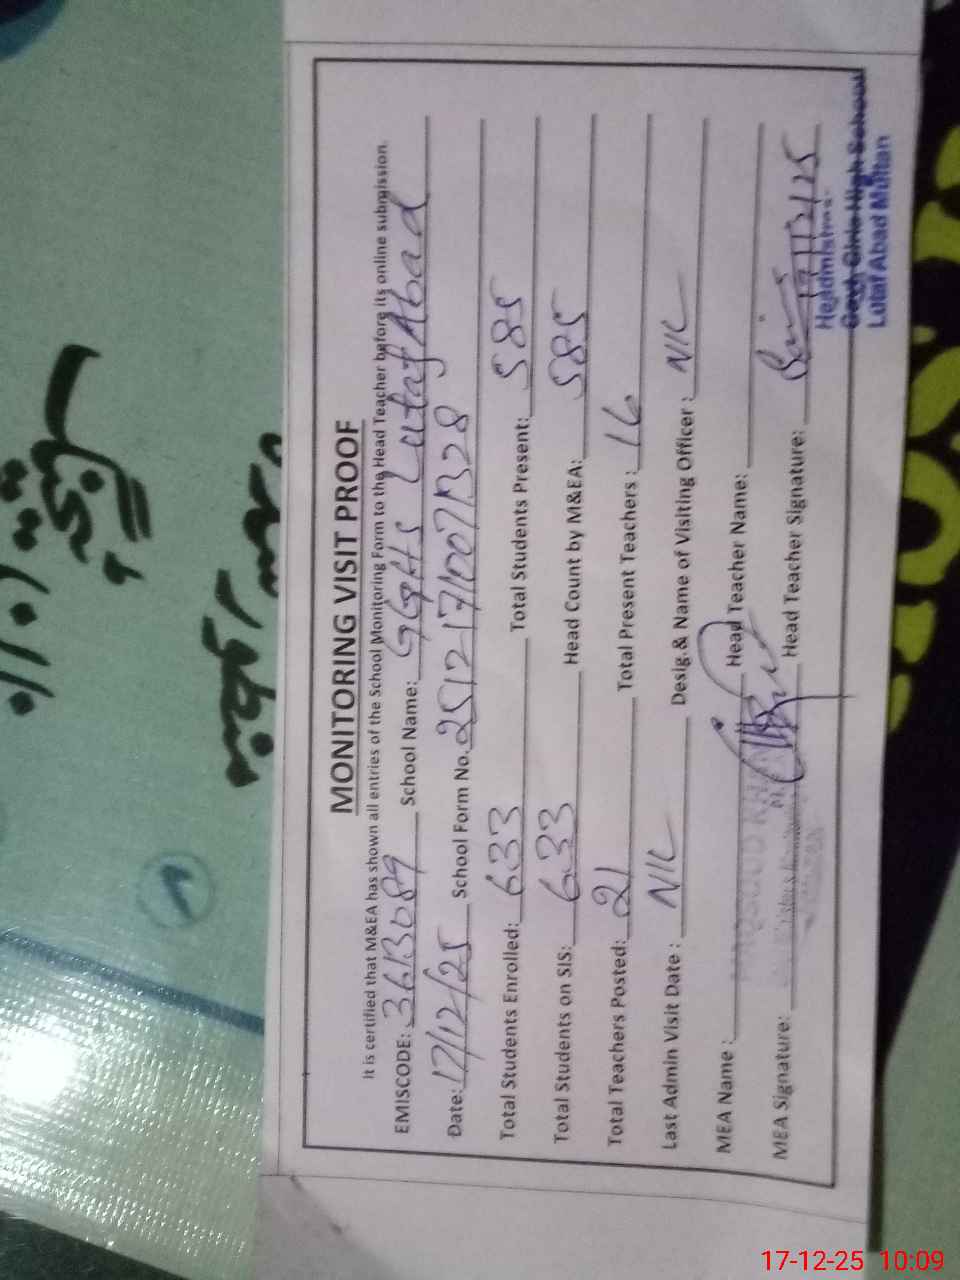 MONITORING VISIT PROOF
It is certified that M&EA has shown all entries of the School Monitoring Form to the Head Teacher before its online submission.
EMISCODE: 3613089 School Name: GGHS Lutaf Abad
Date: 17/12/25 School Form No. 25121710071328
Total Students Enrolled: 633 Total Students Present: 585
Total Students on SIS: 633 Head Count by M&EA: 585
Total Teachers Posted: 21 Total Present Teachers : 16
Last Admin Visit Date : NIL Desig.& Name of Visiting Officer : NIL
MEA Name : Head Teacher Name:
MEA Signature: Head Teacher Signature: 17/12/25
Headmistress
Govt: Girls High School
Lutaf Abad Multan
17-12-25 10:09